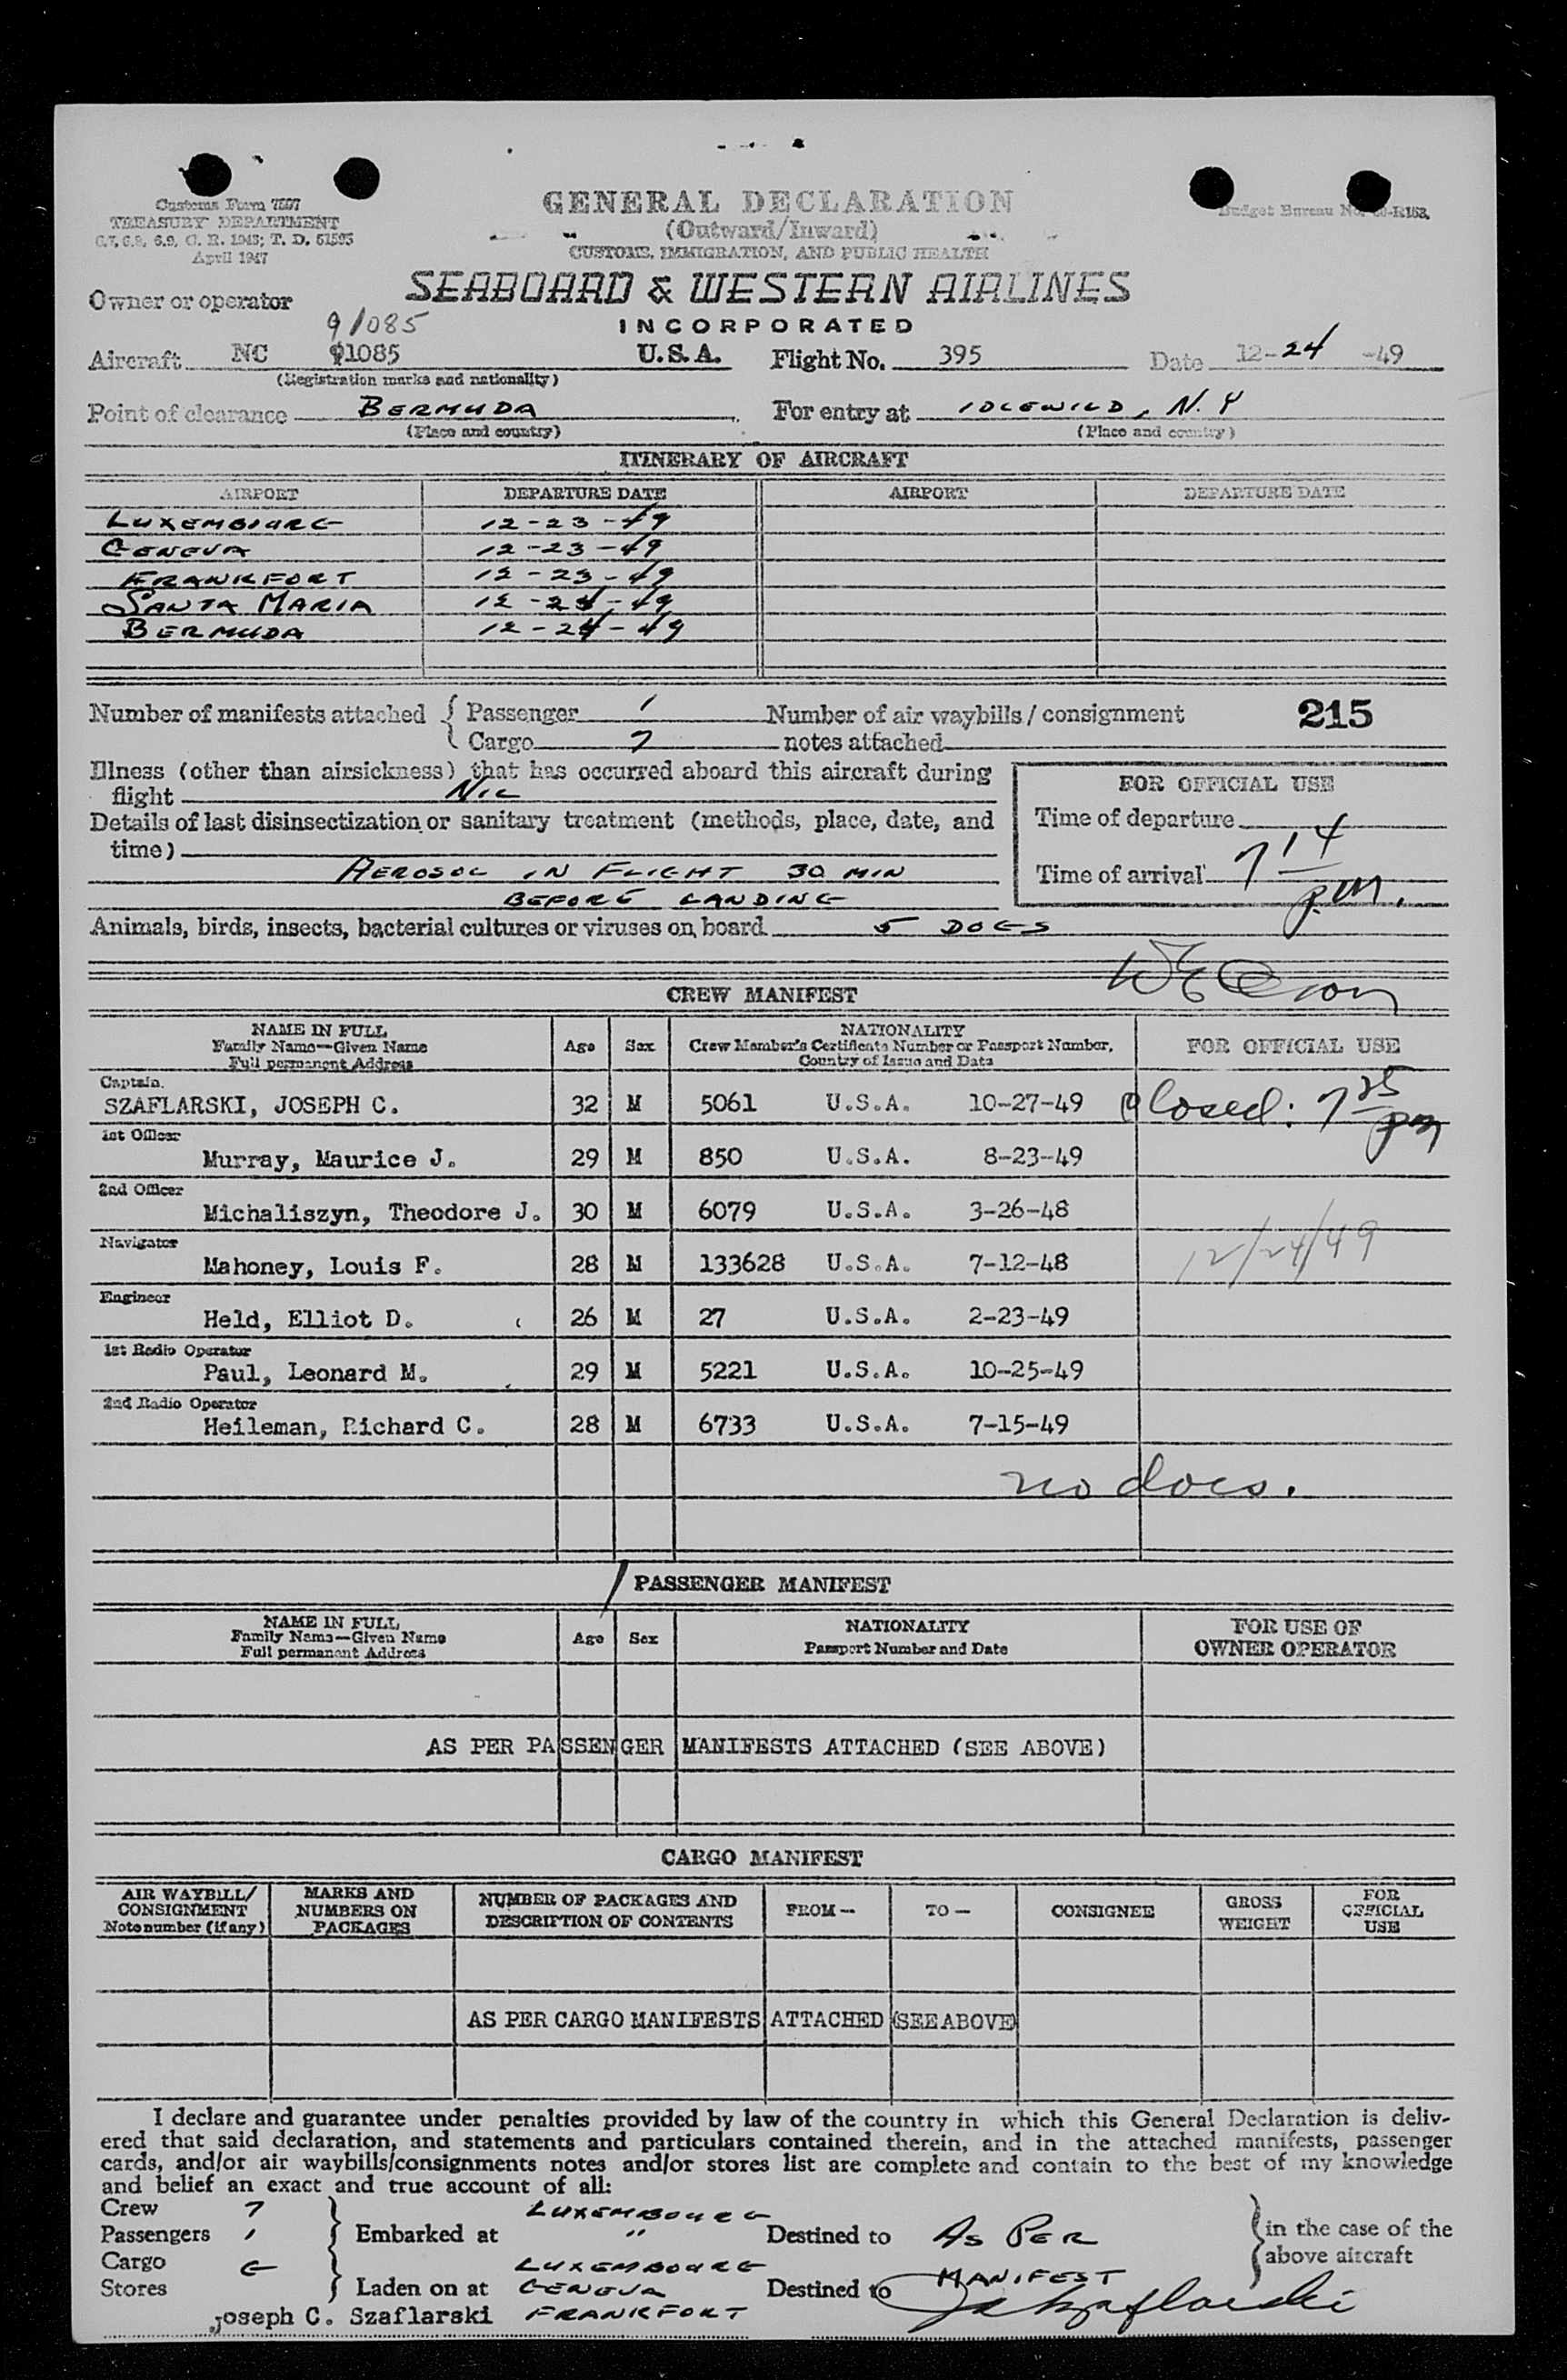 Customs Form 7507
TREASURY DEPARTMENT
6.7, 6.8, 6.9, C. R. 1943; T. D. 51595
April 1947
GENERAL DECLARATION
(Outward/Inward)
CUSTOMS, IMMIGRATION, AND PUBLIC HEALTH
Budget Bureau No.
SEABOARD & WESTERN AIRLINES
INCORPORATED
Owner or operator
91085
Aircraft NC 91085 U.S.A. Flight No. 395 Date 12-24-49
(Registration marks and nationality)
Point of clearance BERMUDA For entry at IDLEWILD, N.Y
(Place and country) (Place and country)
ITINERARY OF AIRCRAFT
AIRPORT DEPARTURE DATE AIRPORT DEPARTURE DATE
LUXEMBOURG 12-23-49
GENEVA 12-23-49
FRANKFORT 12-23-49
SANTA MARIA 12-24-49
BERMUDA 12-24-49
Number of manifests attached { Passenger 1 Number of air waybills / consignment 215
Cargo 7 notes attached
Illness (other than airsickness) that has occurred aboard this aircraft during
flight NIL
FOR OFFICIAL USE
Details of last disinsectization or sanitary treatment (methods, place, date, and
time)
Time of departure
AEROSOL IN FLIGHT 30 MIN
BEFORE LANDING
Time of arrival 7 14 pm.
Animals, birds, insects, bacterial cultures or viruses on board 5 DOGS
CREW MANIFEST
NAME IN FULL Age Sex NATIONALITY FOR OFFICIAL USE
Family Name—Given Name Crew Member's Certificate Number or Passport Number,
Full permanent Address Country of Issue and Date
Captain
SZAFLARSKI, JOSEPH C. 32 M 5061 U.S.A. 10-27-49 Closed: 7 25 pm
1st Officer
Murray, Maurice J. 29 M 850 U.S.A. 8-23-49
2nd Officer
Michaliszyn, Theodore J. 30 M 6079 U.S.A. 3-26-48
Navigator
Mahoney, Louis F. 28 M 133628 U.S.A. 7-12-48 12/24/49
Engineer
Held, Elliot D. 26 M 27 U.S.A. 2-23-49
1st Radio Operator
Paul, Leonard M. 29 M 5221 U.S.A. 10-25-49
2nd Radio Operator
Heileman, Richard C. 28 M 6733 U.S.A. 7-15-49
no docs.
PASSENGER MANIFEST
NAME IN FULL Age Sex NATIONALITY FOR USE OF
Family Name—Given Name Passport Number and Date OWNER OPERATOR
Full permanent Address
AS PER PASSENGER MANIFESTS ATTACHED (SEE ABOVE)
CARGO MANIFEST
AIR WAYBILL/ MARKS AND NUMBER OF PACKAGES AND FROM— TO— CONSIGNEE GROSS FOR
CONSIGNMENT NUMBERS ON DESCRIPTION OF CONTENTS WEIGHT OFFICIAL
Note number (if any) PACKAGES USE
AS PER CARGO MANIFESTS ATTACHED (SEE ABOVE)
I declare and guarantee under penalties provided by law of the country in which this General Declaration is deliv-
ered that said declaration, and statements and particulars contained therein, and in the attached manifests, passenger
cards, and/or air waybills/consignments notes and/or stores list are complete and contain to the best of my knowledge
and belief an exact and true account of all:
Crew 7 LUXEMBOURG
Passengers 1 } Embarked at " Destined to AS PER } in the case of the
Cargo LUXEMBOURG above aircraft
Stores } Laden on at GENEVA Destined to MANIFEST
Joseph C. Szaflarski FRANKFORT J C Szaflarski